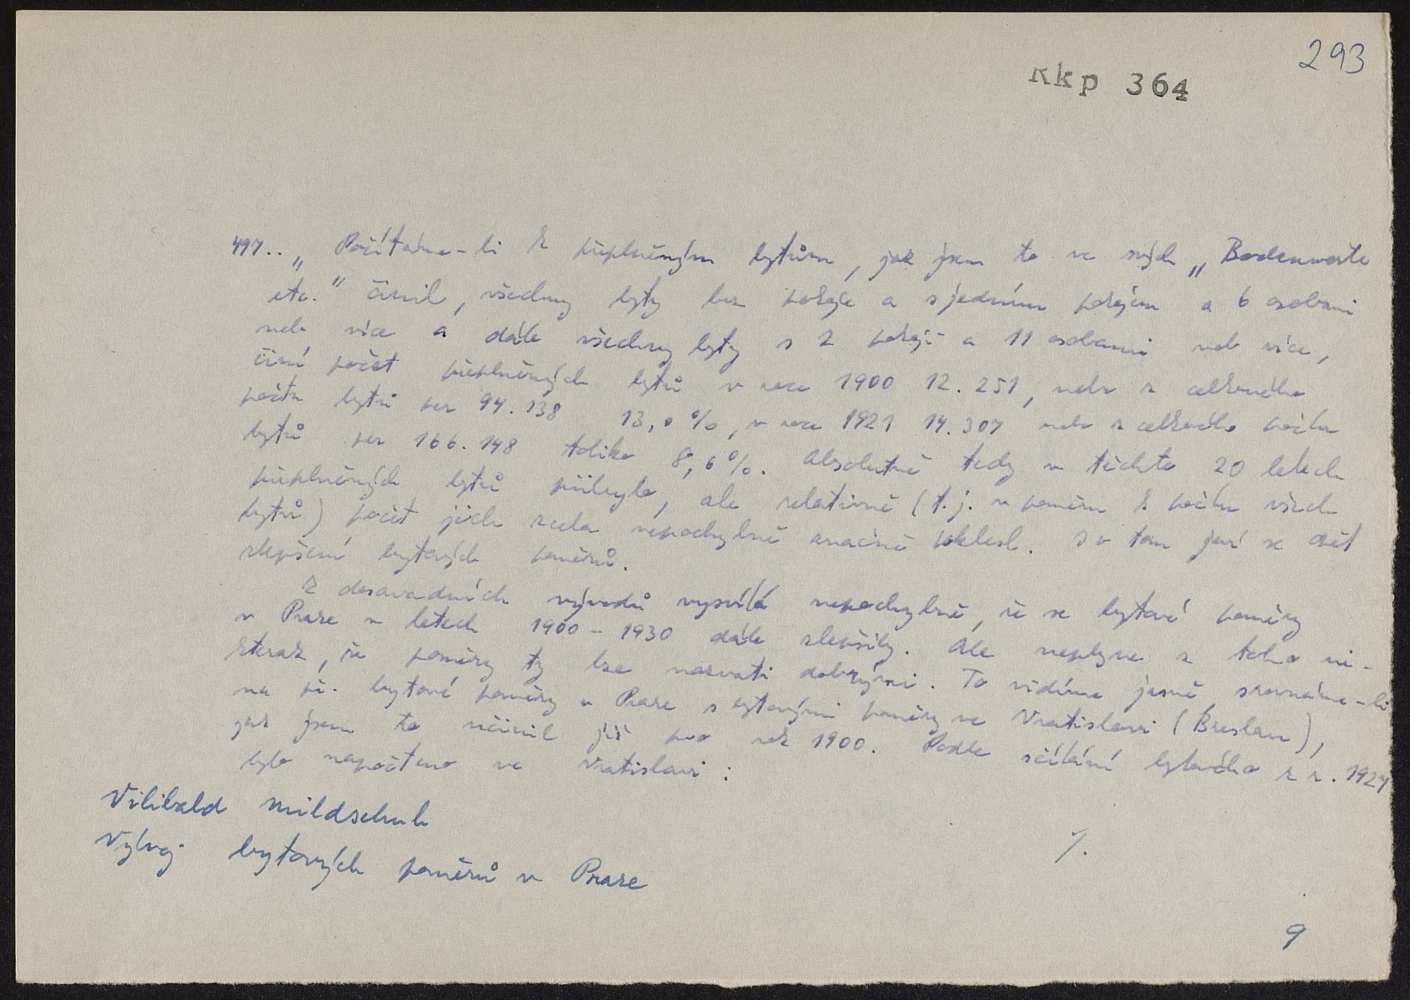 293
Rkp 364
497.. „Počítáme-li k přeplněným bytům, jak jsem to ve svých „Bodenwerte
etc." činil, všechny byty bez pokoje a s jedním pokojem a 6 osobami
neb více a dále všechny byty s 2 pokoji a 11 osobami neb více,
činí počet přeplněných bytů v roce 1900 12.251, nebo z celkového
počtu bytů per 94.138 13,0%, v roce 1921 14.307 neb z celkového počtu
bytů per 166.148 toliko 8,6%. Absolutně tedy v těchto 20 letech
přeplněných bytů přibylo, ale relativně (t.j. v poměru k počtu všech
bytů) počet jich zcela nepochybně značně poklesl. I v tom jeví se
zlepšení bytových poměrů.
Z dosavadních vývodů vysvítá nepochybně, že se bytové poměry
v Praze v letech 1900-1930 dále zlepšily. Ale neplyne z toho ni-
kterak, že poměry ty lze nazvati dobrými. To vidíme jasně, srovnáme-li
na př. bytové poměry v Praze s bytovými poměry ve Vratislavi (Breslau),
jak jsem to učinil již pro rok 1900. Podle sčítání bytového z r. 1927
bylo napočteno ve Vratislavi:
Vilibald Mildschuh
Vývoj bytových poměrů v Praze
./.
9